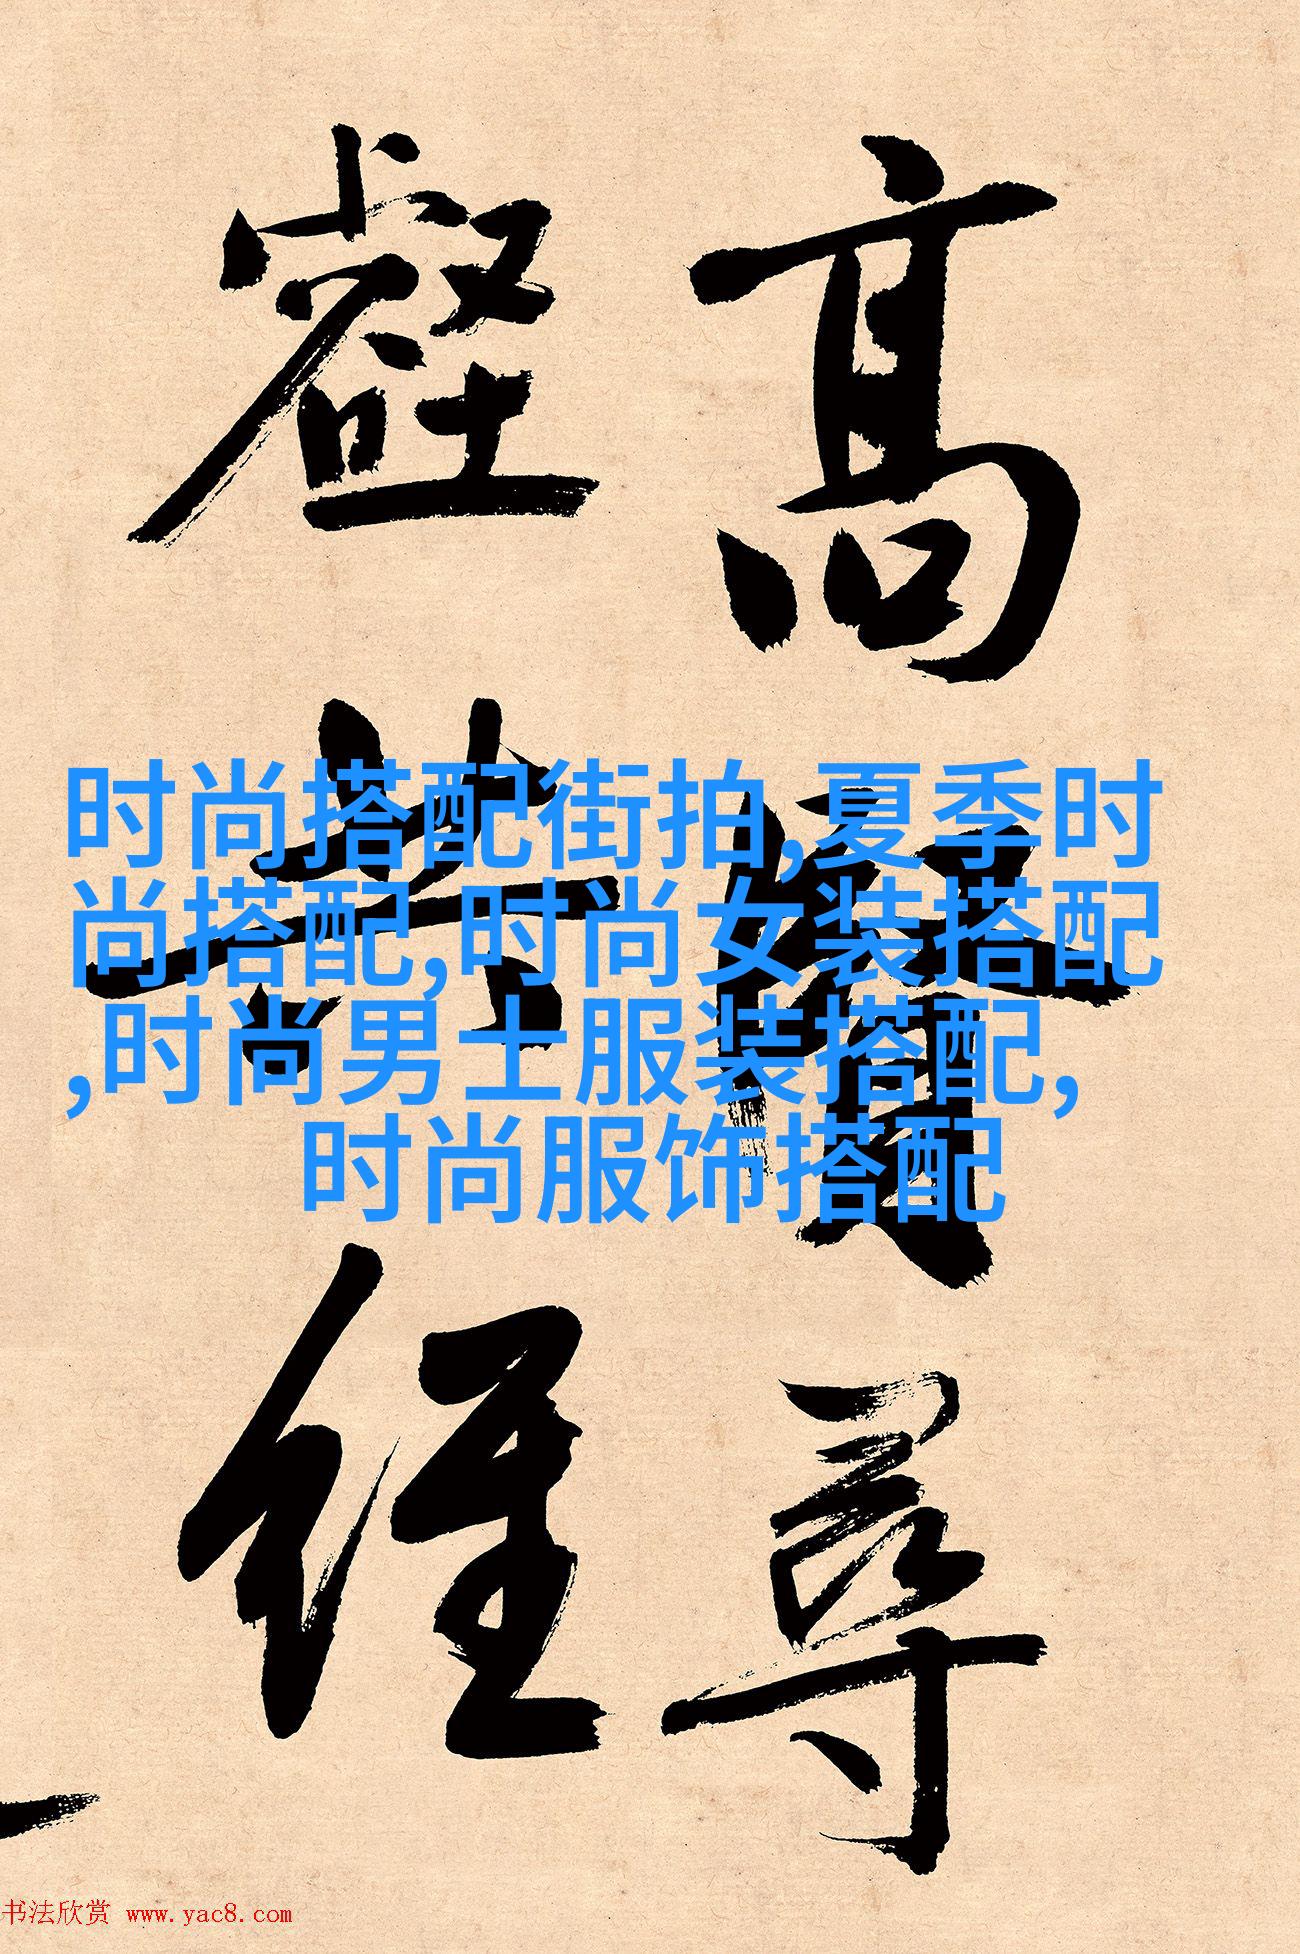 高賢尋
壑苦經
时尚搭配街拍,夏季时
尚搭配,时尚女装搭配
,时尚男士服装搭配,
时尚服饰搭配
书法欣赏 www.yac8.com